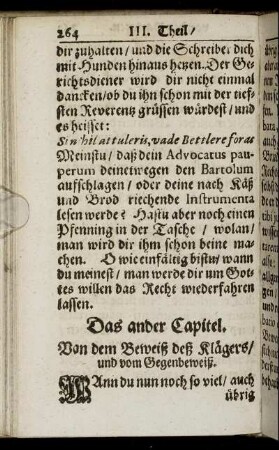 264 III. Theil/
dir zuhalten/ und die Schreiber dich
mit Hunden hinaus hetzen. Der Ge-
richtsdiener wird dir nicht einmal
dancken/ ob du ihn schon mit der tieff-
sten Reverentz grüssen würdest/ und
es heisset:
Si nihil attuleris, vade Bettlere foras
Meinstu/ daß dein Advocatus pau-
perum deinetwegen den Bartolum
aufschlagen/ oder deine nach Käß
und Brod riechende Instrumenta
lesen werde? Hastu aber noch einen
Pfenning in der Tasche/ wolan/
man wird dir ihn schon beine ma-
chen. O wie einfältig bistu/ wann
du meinest/ man werde dir um Got-
tes willen das Recht wiederfahren
lassen.
Das ander Capitel.
Van dem Beweiß deß Klägers/
und vom Gegenbeweiß.
WAnn du nun noch so viel/ auch
übrig